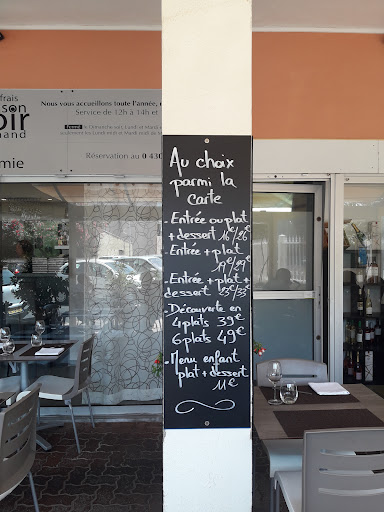 frais
Nous vous accueillons toute l'année,
Service de 12h à 14h et
Fermé
Réservation au 0 430
mie
Au choix
parmi la
carte
- Entrée ou plat
+ dessert 16€/26€
- Entrée + plat
19€/29€
- Entrée + plat +
dessert 25€/35€
- Découverte en
4 plats 39€
6 plats 49€
- Menu enfant
plat + dessert
11€